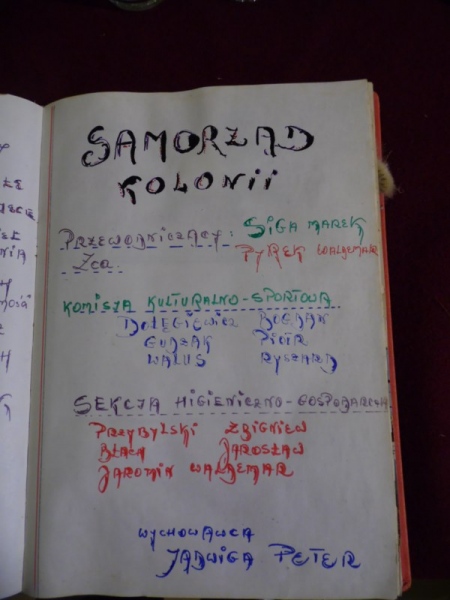 SAMORZĄD
KOLONII
PRZEWODNICZĄCY: SIGA MAREK
Zca. PYREK WALDEMAR
KOMISJA KULTURALNO-SPORTOWA
BOGDAN
GUDZAK PIOTR
WALUS RYSZARD
SEKCJA HIGIENICZNO-GOSPODARCZA
PRZYBYLSKI ZBIGNIEW
JAROSŁAW
JAROMIN WALDEMAR
WYCHOWAWCA
JADWIGA PETER